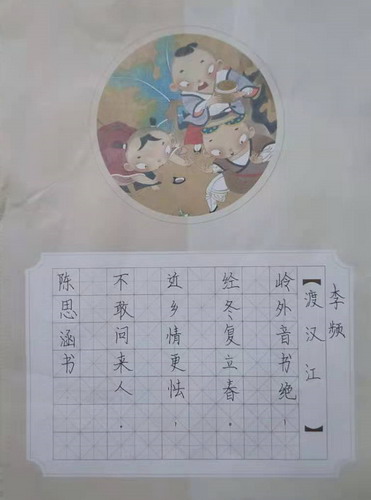 李频
【渡汉江】
岭外音书绝，
经冬复立春。
近乡情更怯，
不敢问来人。
陈思涵书